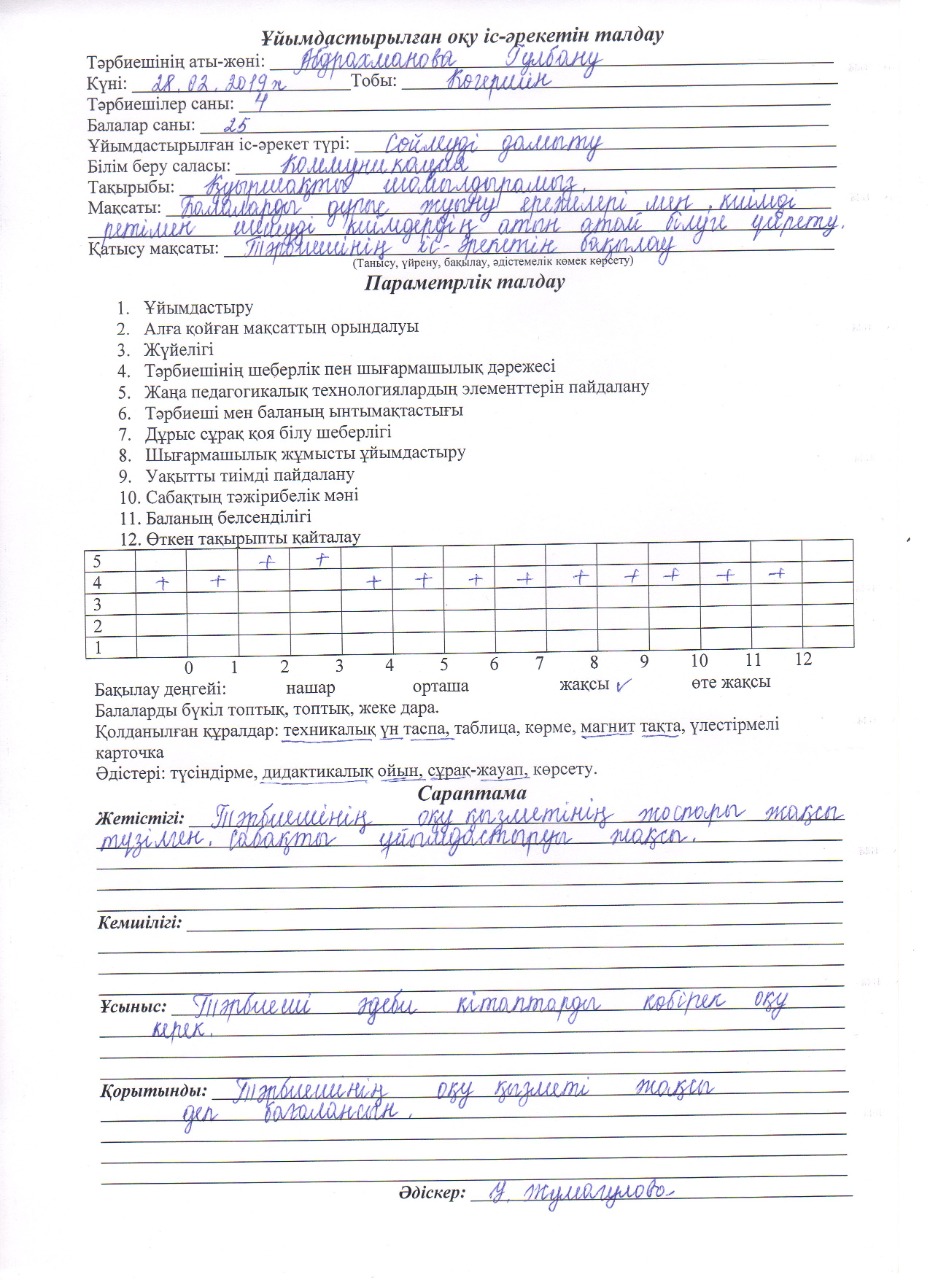 Ұйымдастырылған оқу іс-әрекетін талдау
Тәрбиешінің аты-жөні: Абдрахманова Гулбану
Күні: 28.02.2019ж Тобы: Көгершін
Тәрбиешілер саны: 4
Балалар саны: 25
Ұйымдастырылған іс-әрекет түрі: Сөйлеуді дамыту
Білім беру саласы: Коммуникация
Тақырыбы: Қуыршақты шомылдырамыз.
Мақсаты: Балаларды дұрыс жуыну ережелері мен, киімді
ретімен шешуді киімдердің атын атай білуге үйрету.
Қатысу мақсаты: Тәрбиешінің іс-әрекетін бақылау
(Танысу, үйрену, бақылау, әдістемелік көмек көрсету)
Параметрлік талдау
1. Ұйымдастыру
2. Алға қойған мақсаттың орындалуы
3. Жүйелігі
4. Тәрбиешінің шеберлік пен шығармашылық дәрежесі
5. Жаңа педагогикалық технологиялардың элементтерін пайдалану
6. Тәрбиеші мен баланың ынтымақтастығы
7. Дұрыс сұрақ қоя білу шеберлігі
8. Шығармашылық жұмысты ұйымдастыру
9. Уақытты тиімді пайдалану
10. Сабақтың тәжірибелік мәні
11. Баланың белсенділігі
12. Өткен тақырыпты қайталау
5 + +
4 + + + + + + + + + + +
3
2
1
0 1 2 3 4 5 6 7 8 9 10 11 12
Бақылау деңгейі: нашар орташа жақсы ✓ өте жақсы
Балаларды бүкіл топтық, топтық, жеке дара.
Қолданылған құралдар: техникалық үн таспа, таблица, көрме, магнит тақта, үлестірмелі
карточка
Әдістері: түсіндірме, дидактикалық ойын, сұрақ-жауап, көрсету.
Сараптама
Жетістігі: Тәрбиешінің оқу қызметінің жоспары жақсы
түзілген. Сабақты ұйымдастыруы жақсы.
Кемшілігі:
Ұсыныс: Тәрбиеші әдеби кітаптарды көбірек оқу
керек.
Қорытынды: Тәрбиешинің оқу қызметі жақсы
деп бағалансын.
Әдіскер: У. Жумагулова